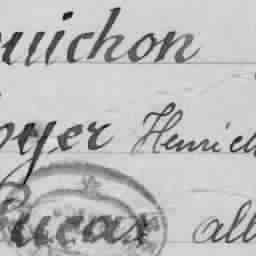 uichon
oyer Henrich
Lucas all